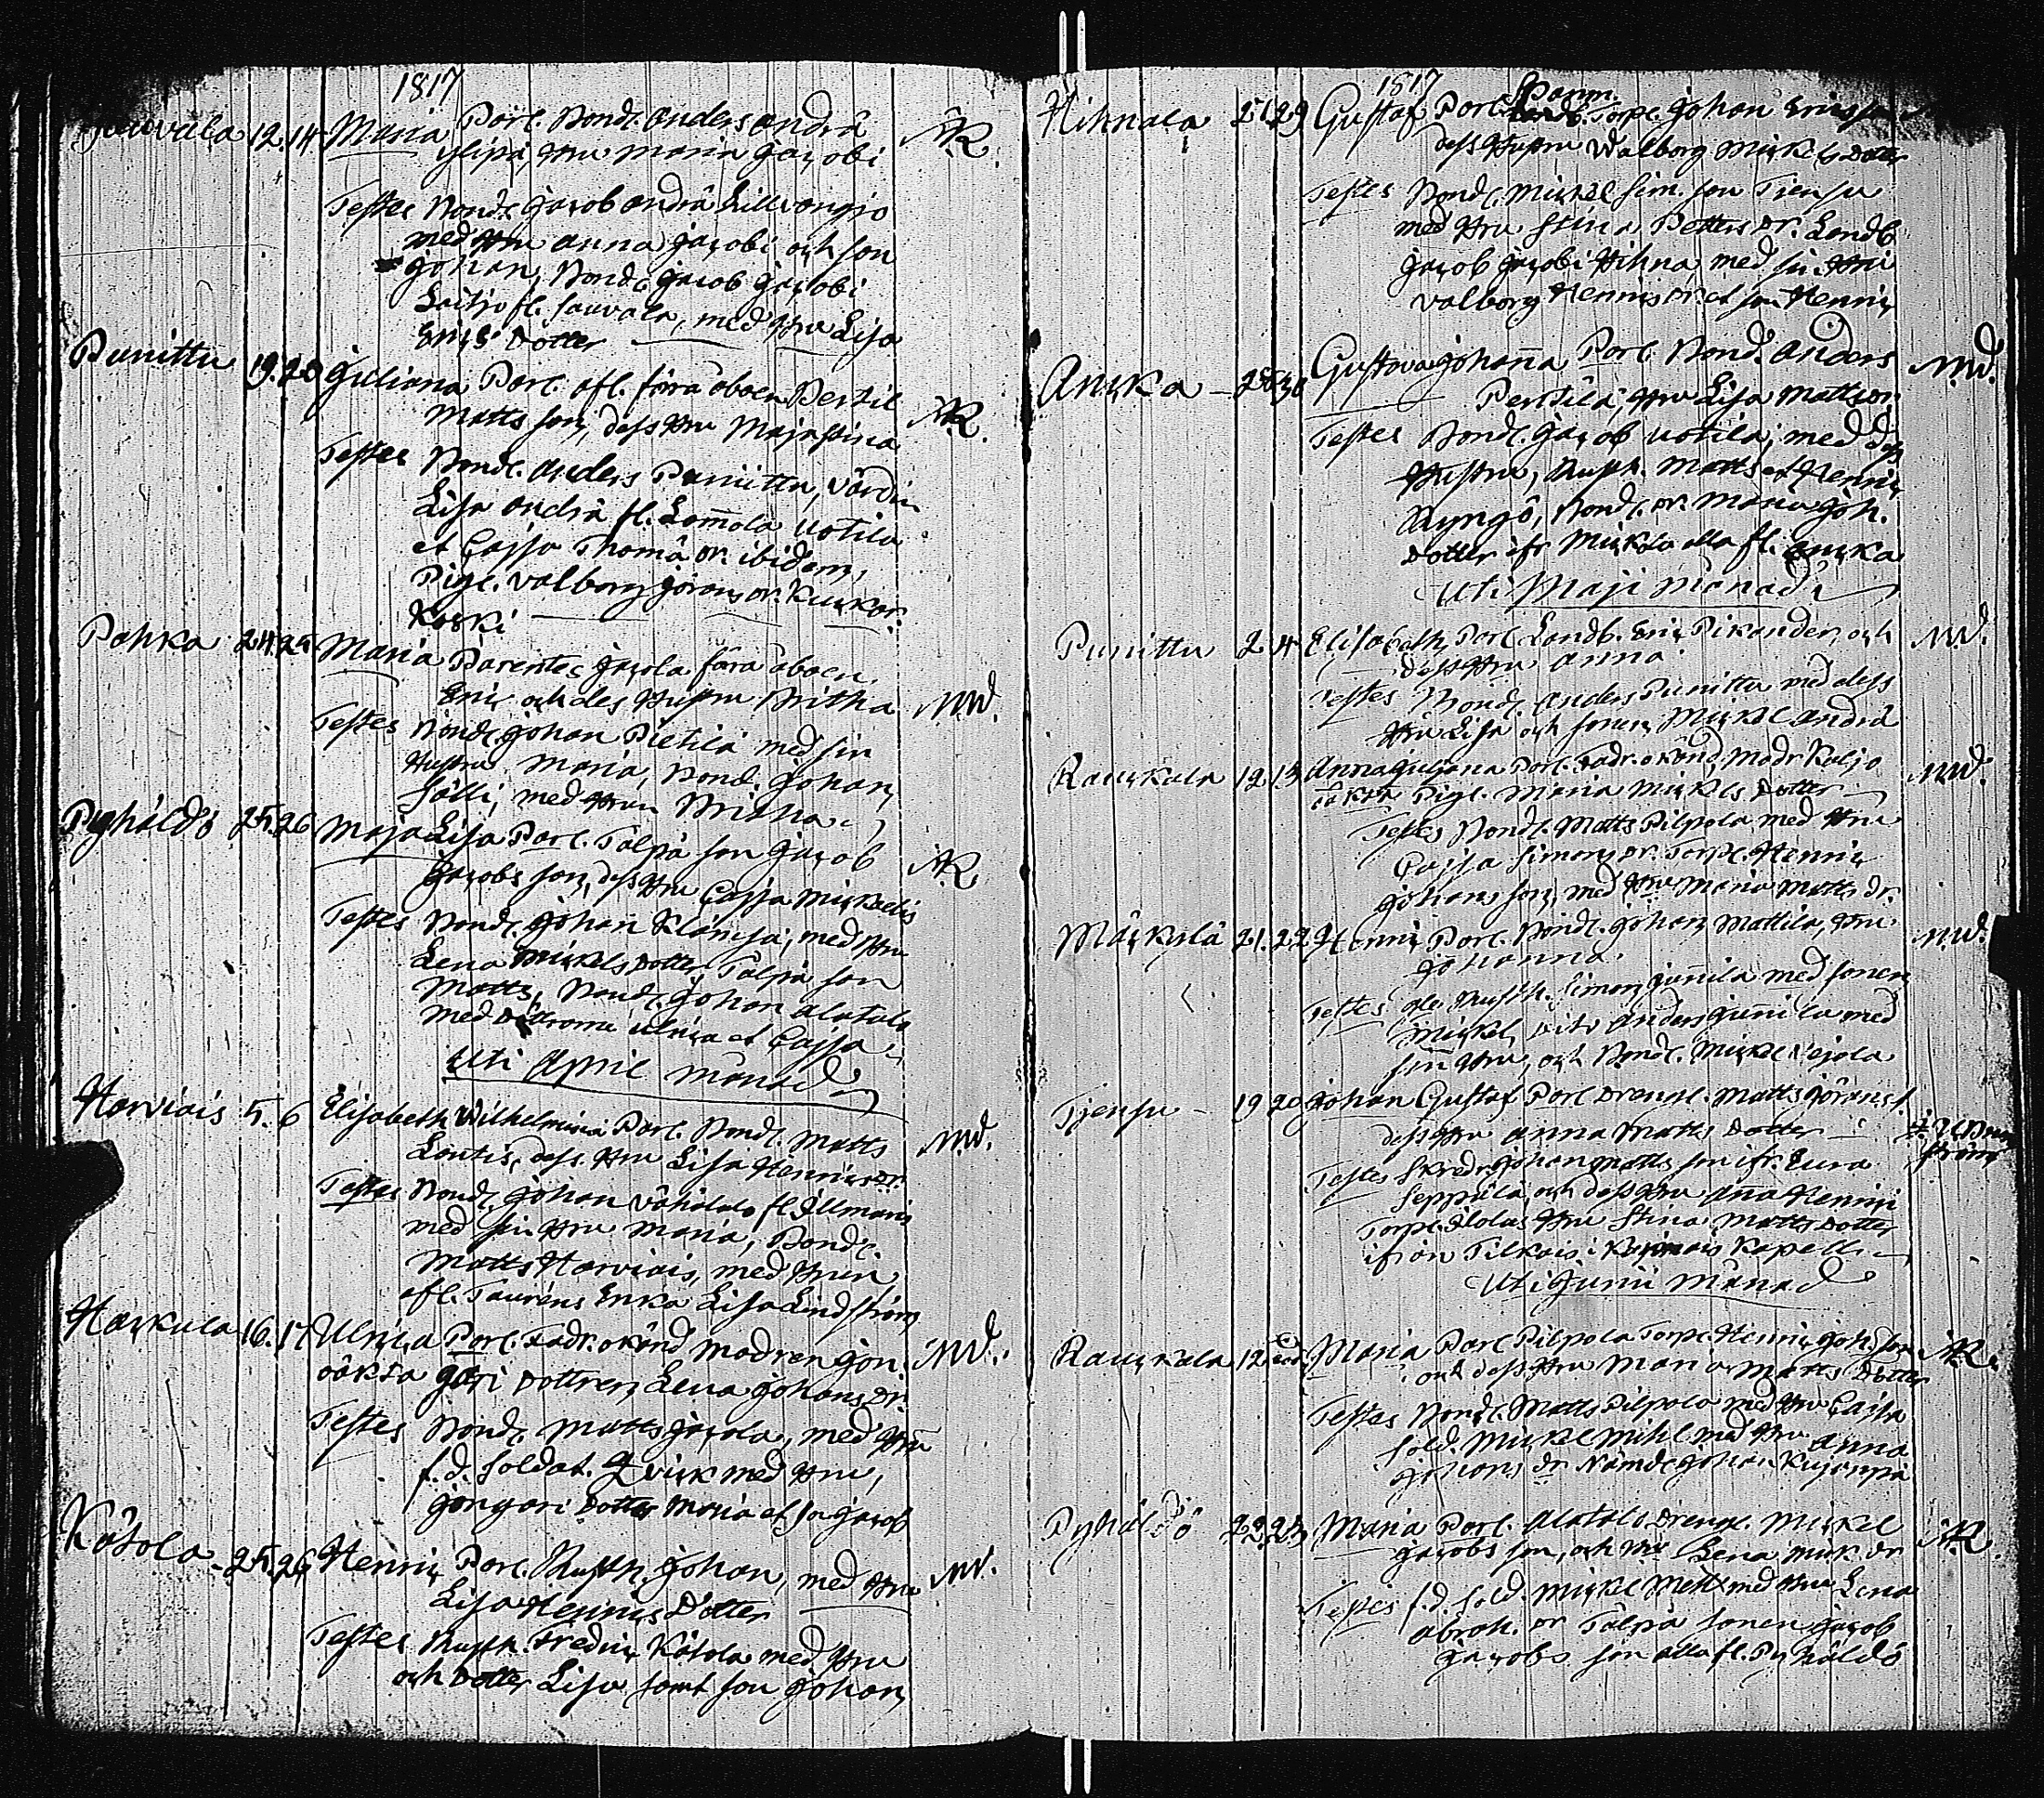 1817
Jauvala 12. 14 Maria Par. Bond. Anders Andrä
Ylipä, Hru Maria Jacobi AR.
Testes Bond. Jacob Andrä
med Hru Anna Jacobi och son
Johan, Bond. Jacob Jacobi
Laitjo fl. Jauvala, med Hru Lisa
Erics Dotter
Punittu 19. 20 Juliana Par. afl. förra åboen Bertil
Matts son, dess Hru Maja Stina AR.
Testes Bond. Anders Punittu, Värdin
Lisa Andrä fl. Lom̄ola Uotila
et Cajsa Thomä Dr. ibidem,
Pig. Valborg Görans Dr.
Koski
Pohka 24. 25 Maria Parentes Jacola förra åboen
Eric och des Hustru Britha MW.
Testes Bond. Johan Pietilä med sin
Hustru Maria, Bond. Johan
Sälli, med Hrun Britha
Pyhäldö 25. 26 Maja Lisa Par. Tälpä son Jacob
Jacobs son, dess Hru Cajsa Mickaelis AR
Testes Bond. Johan Klånsä, med Hru
Lena Mickels Dotter, Tälpä son
Matts, Bond. Johan Alatalo
med Döttrarna Ulrica et Cajsa
Uti April månad
Harviais 5. 6 Elisabeth Wilhelmina Par. Bond. Matts
Lontis, dess Hru Lisa Henrics Dr. MW.
Testes Bond. Johan Vähätalo fl. Illmais
med sin Hru Maria, Bond.
Matts Harviais, med Hrun
afl. Tauréns Enka Lisa Lindström
Hackula 16. 17 Ulrica Par. Fadr. okänd Modren Jon- MW.
oäkta gari Dottren Lena Johans Dr.
Testes Bond. Matts Jacola, med Hru
f.d. Soldat. Qvick med Hru,
Jongari Dotter Maria et son Jacob
Kötola 25. 26 Henric Par. Rusth. Johan, med Hru MW.
Lisa Henrics Dotter
Testes Rusth. Fredric Kötola med Hru
och Dotter Lisa samt son Johan
1817
Hihnala 29 Gustaf Par. Torp. Johan Ericsson
dess Hustru Walborg Mickels Dotter
Testes Bond. Mickel Sim. son Tjensu
med Hru Stina Petters Dr. Landb.
Jacob Jacobi Hihna med sin Hru
Valborg Henrics Dr. et son Henric
Ancka Gustava Johan̄a Par. Bond. Anders MW.
Perttilä, Hru Lisa Matts Dr.
Testes Bond. Jacob Uotila, med dess
Hustru, Rusth. Matts et Henric
Ryngö, Bond. Dr. Maria Joh.
Dotter ifr. Mickola alla fl. Ancka
Uti Maji månad
Punittu 2. 4 Elisabeth, Par. Landb. Eric Pikander och MW.
dess Hru Anna
Testes Bond. Anders Punittu med dess
Hru Lisa och sonen Mickel Andrä
Rauckala 12. 13 Anna Juliana Par. Fadr. okänd, Modr Kaljo MW.
oäkta Pig. Maria Mickels Dotter
Testes Bond. Matts Pilpola med Hru
Cajsa Simons Dr. Torp. Henric
Johans son, med Hru Maria Matts Dr.
Mäckylä 21. 22 Henric Par. Bond. Johan Mattila, Hru MW.
Johanna.
Testes Rusth. Simon Jun̄ila med sonen
Mickel, Dito Anders Jun̄ila med
sin Hru, och Bond. Mickel Vejola
Tjensu 19 20 Johan Gustaf Par. Dreng. Matts Görans s.
dess Hru Anna Matts Dotter
Testes Skredr. Johan Matts son ifr. Eura
Seppälä, och dess Hru Anna Henrici
Torp. Hru Stina Matts Dotter
ifrån Tilkais i Kapell
Uti Junii månad
Rauckala 12. Maria Par. Pilpola Torp. Henric Joh. son AR.
och dess Hru Maria Matts Dotter
Testes Bond. Matts Pilpola med Hru Cajsa
Sold. Mickel Mihl med Hru Anna
Johans Dr. Nämd. Johan Kujanpä
Pyhäldö 22. 23 Maria Par. Alatalo Dreng. Mickel AR
Jacobs son, och Hru Lena Mick. Dr.
Testes f.d. Sold. Mickel Mett med Hru Lena
Abrah. Dr Tälpä sonen Jacob
Jacobs son alla fl. Pyhäldö